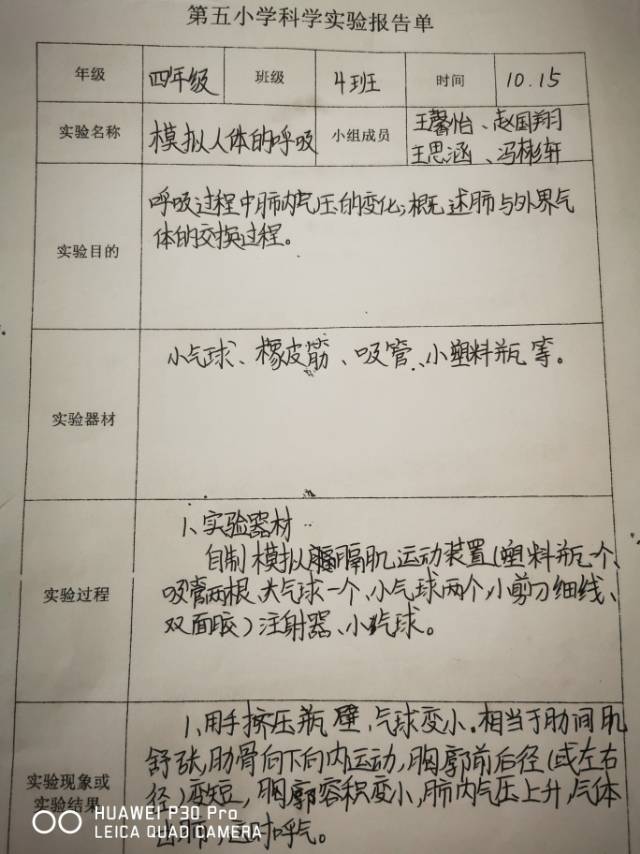 第五小学科学实验报告单
年级 四年级 班级 4班 时间 10.15
实验名称 模拟人体的呼吸 小组成员 王馨怡、赵国翔
王思涵、冯彬轩
呼吸过程中肺内气压的变化;概述肺与外界气
实验目的 体的交换过程。
小气球、橡皮筋、吸管、小塑料瓶等。
实验器材
1、实验器材
自制模拟膈肌运动装置(塑料瓶一个、
实验过程 吸管两根、大气球一个、小气球两个,小剪刀细线、
双面胶)注射器、小气球。
1、用手挤压瓶壁,气球变小。相当于肋间肌
舒张,肋骨向下向内运动,胸廓前后径(或左右
实验现象或 径)变短,胸廓容积变小,肺内气压上升,气体
实验结果 出肺,这时呼气。
HUAWEI P30 Pro
LEICA QUAD CAMERA